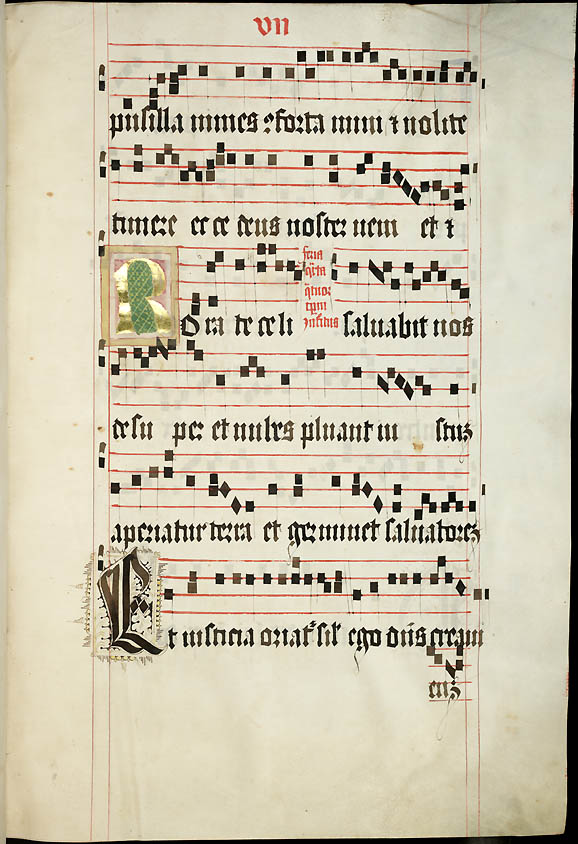 VII
pusilla nimes ꝯforta mini ⁊ nolite
timere ecce deus noster ueni et
feria
qrta
qtuor
tpm
Rora te celi saluabit nos
desu per et nubes pluant iu stuz
aperiatur terra et germinet saluatorez
Et iusticia oriat sil ego dns creaui
euz